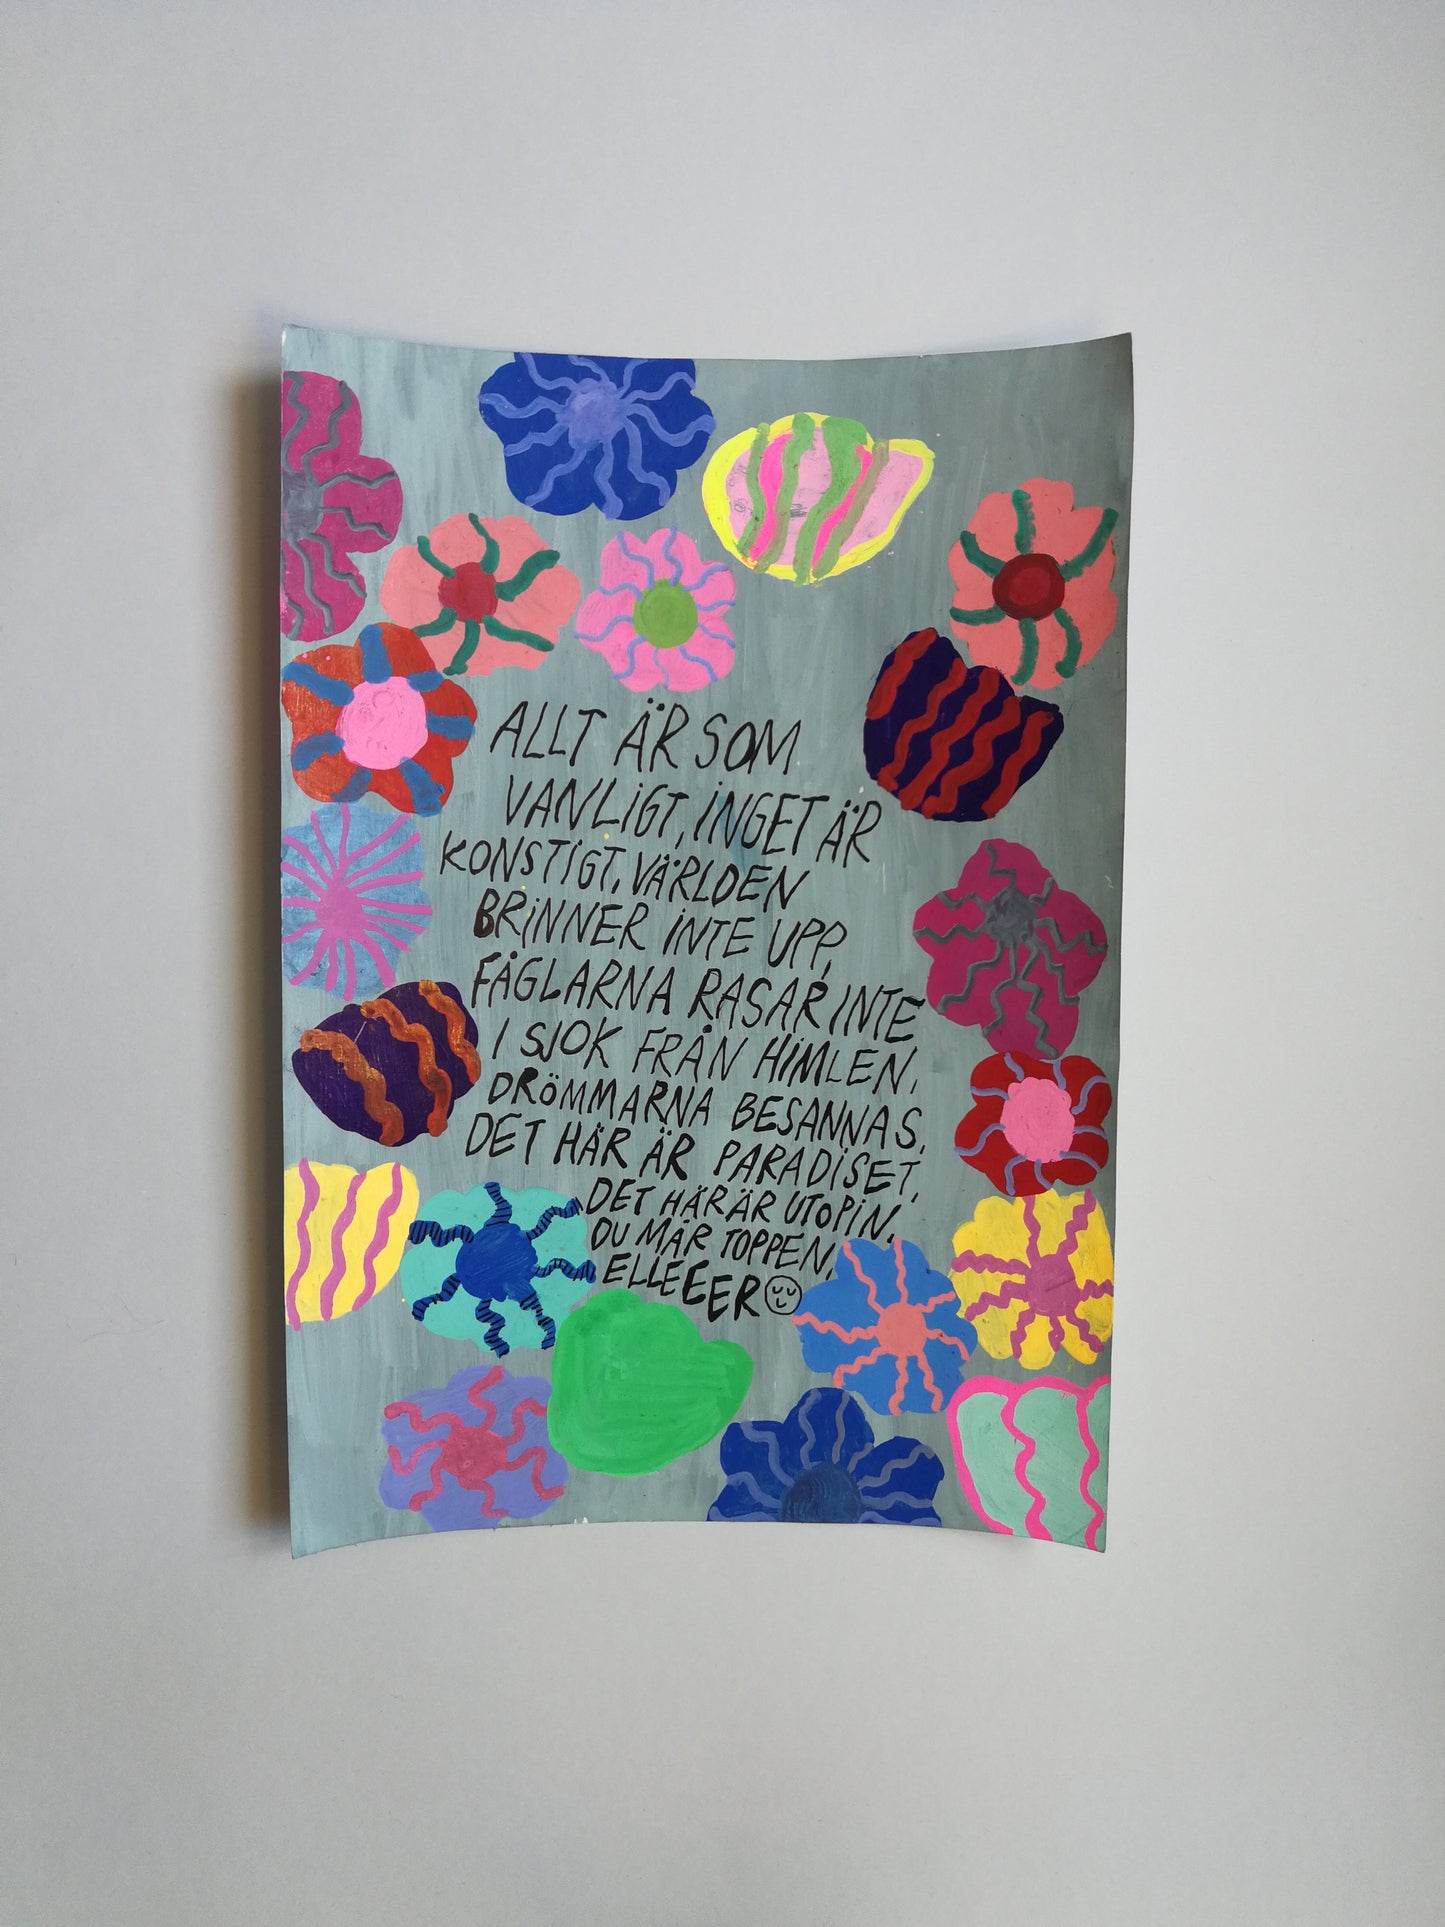 ALLT ÄR SOM
VANLiGT, iNGET ÄR
KONSTiGT, VÄRLDEN
BRiNNER iNTE UPP,
FÅGLARNA RASAR INTE
I SJOK FRÅN HiMLEN,
DRÖMMARNA BESANNAS,
DET HÄR ÄR PARADiSET,
DET HÄR ÄR UTOPiN,
DU MÅR TOPPEN,
ELLEEER